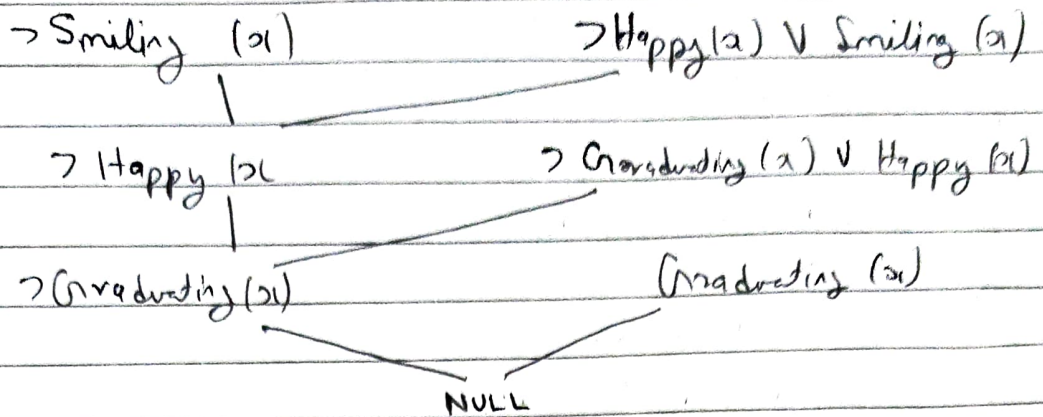 ¬ Smiling (x) ¬ Happy(x) V Smiling (x)
¬ Happy (x ¬ Graduating (x) V Happy (x)
¬ Graduating (x) Graduating (x)
NULL